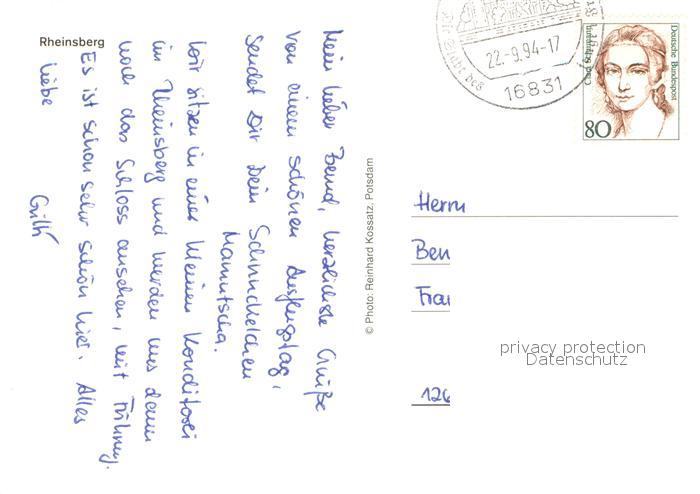 Rheinsberg
Mein lieber Bernd, herzlichste Grüße
von einem schönen Ausflugstag,
sendet Dir Dein Schnuckelchen
Mamutscha.
Wir sitzen in einer kleinen Konditorei
in Rheinsberg und werden uns dann
noch das Schloss ansehen, mit Führung.
Es ist schon sehr schön hier. Alles
Liebe
© Photo: Reinhard Kossatz, Potsdam
22.-9.94-17
16831
Deutsche Bundespost
Clara Schumann
80
Herrn
Ben
Frau
126
privacy protection
Datenschutz